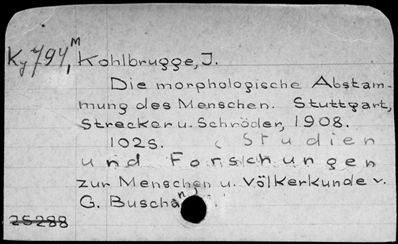 Ky 794, M Kohlbrugge, J.
Die morphologische Abstam-
mung des Menschen. Stuttgart,
Strecker u. Schröder, 1908.
102 S. (Studien
und Forschungen
zur Menschen u. Völkerkunde v.
G. Buschan
25288